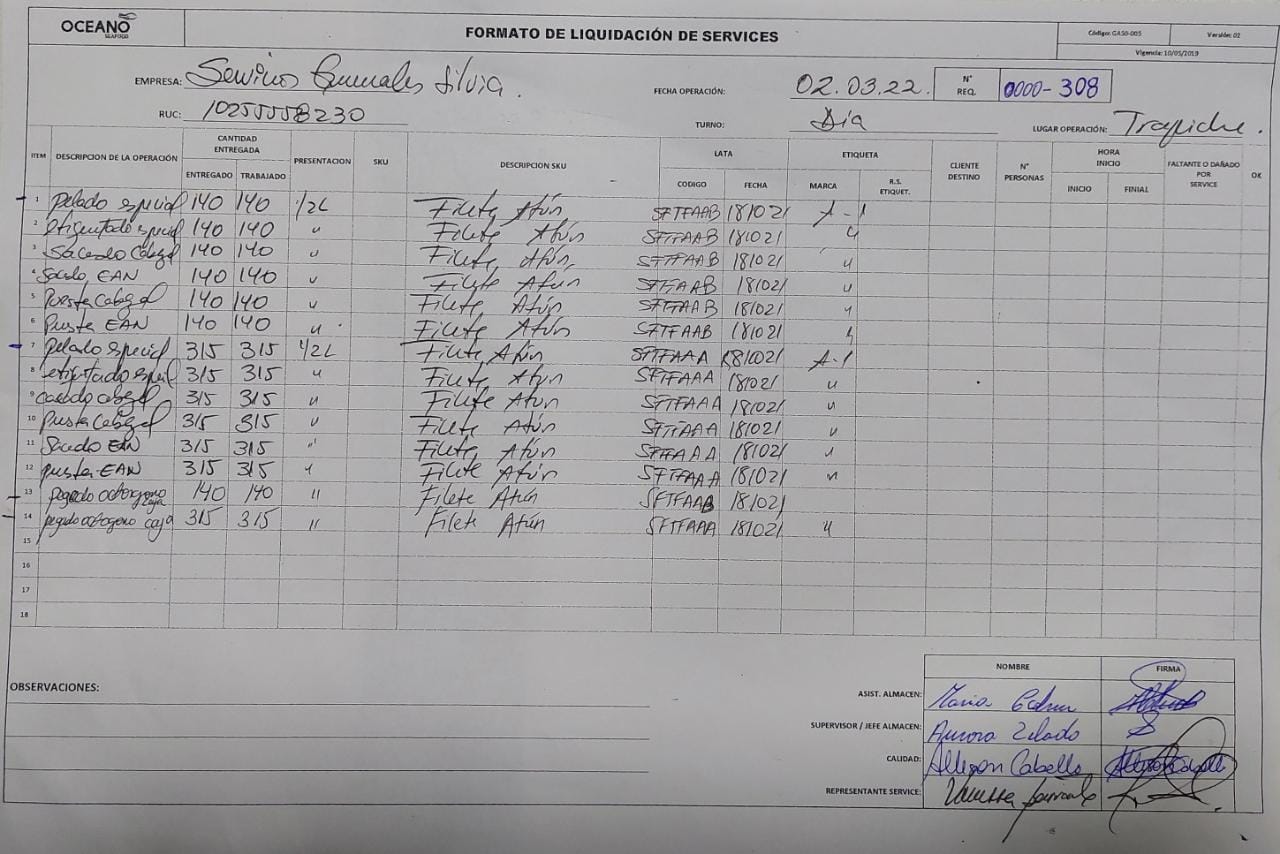 OCEANO
SEAFOOD
FORMATO DE LIQUIDACIÓN DE SERVICES
Código: GA50-005 Versión: 02
Vigencia: 10/05/2019
EMPRESA: Silvia.
FECHA OPERACIÓN: 02.03.22. N° REQ. 0000-308
RUC: 10255558230
TURNO: Día LUGAR OPERACIÓN: Trapiche.
ITEM DESCRIPCION DE LA OPERACIÓN CANTIDAD ENTREGADA PRESENTACION SKU DESCRIPCION SKU LATA ETIQUETA CLIENTE DESTINO N° PERSONAS HORA INICIO FALTANTE O DAÑADO POR SERVICE OK
ENTREGADO TRABAJADO CODIGO FECHA MARCA R.S. ETIQUET. INICIO FINIAL
1 pelado especial 140 140 1/2L Filete Atún SFTFAAB 181021 A-1
2 etiquetado 140 140 " Filete Atún SFTFAAB 181021 "
3 140 140 " Filete Atún SFTFAAB 181021 "
4 EAN 140 140 " Filete Atún SFTFAAB 181021 "
5 140 140 " Filete Atún SFTFAAB 181021 "
6 EAN 140 140 " Filete Atún SFTFAAB 181021 "
7 pelado especial 315 315 1/2L Filete Atún SFTFAAA 181021 A-1
8 etiquetado 315 315 " Filete Atún SFTFAAA 181021 "
9 315 315 " Filete Atún SFTFAAA 181021 "
10 315 315 " Filete Atún SFTFAAA 181021 "
11 EAN 315 315 " Filete Atún SFTFAAA 181021 "
12 EAN 315 315 " Filete Atún SFTFAAA 181021 "
13 pegado octogono caja 140 140 " Filete Atún SFTFAAB 181021
14 pegado octogono caja 315 315 " Filete Atún SFTFAAA 181021 "
15
16
17
18
OBSERVACIONES:
NOMBRE FIRMA
ASIST. ALMACEN: Maria
SUPERVISOR / JEFE ALMACEN: Aurora
CALIDAD: Allison Cabello
REPRESENTANTE SERVICE: Vanessa